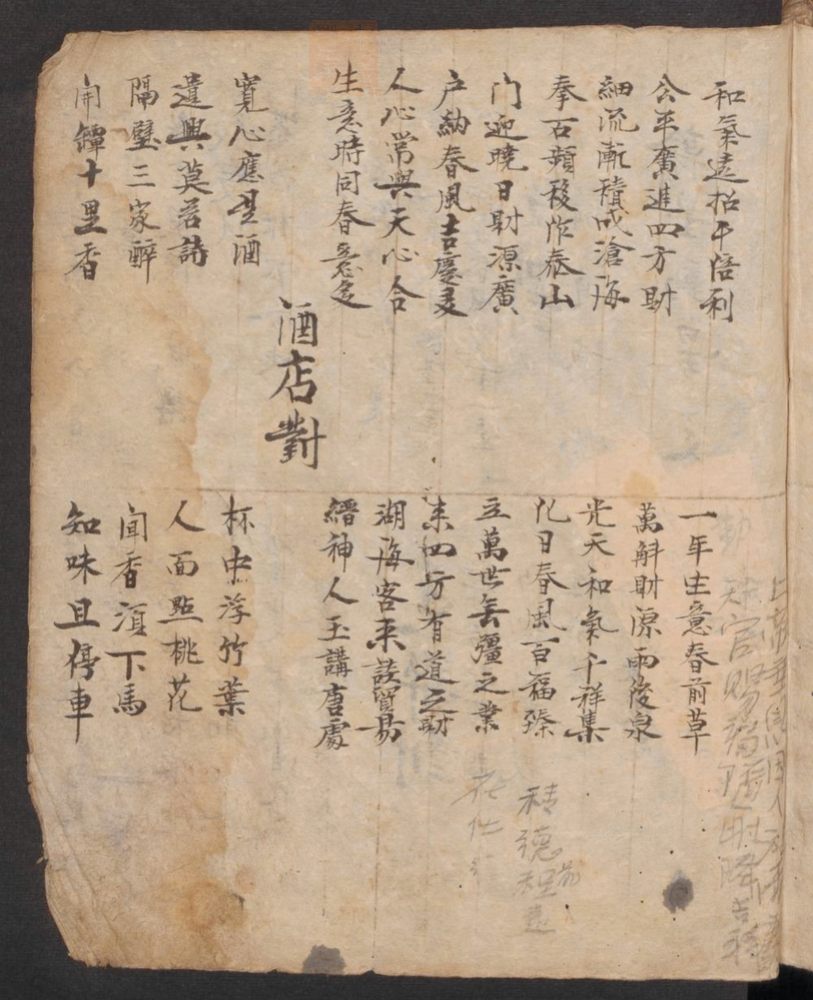 和氣遠招千倍利
公平廣進四方財
細流漸積成滄海
拳石頻移作泰山
门迎曉日財源廣
户納春風吉慶多
人心常與天心合
生意時同春意
酒店對
寬心應是酒
遣興莫若詩
隔壁三家醉
開罈十里香
一年生意春前草
萬斛財源雨後泉
光天和氣千祥集
化日春風百福臻
立萬世無疆之業
来四方有道之財
湖海客来談貿易
縉神人玉講唐虞
杯中浮竹葉
人面點桃花
聞香須下馬
知味且停車
積德
花仕
財官賜福